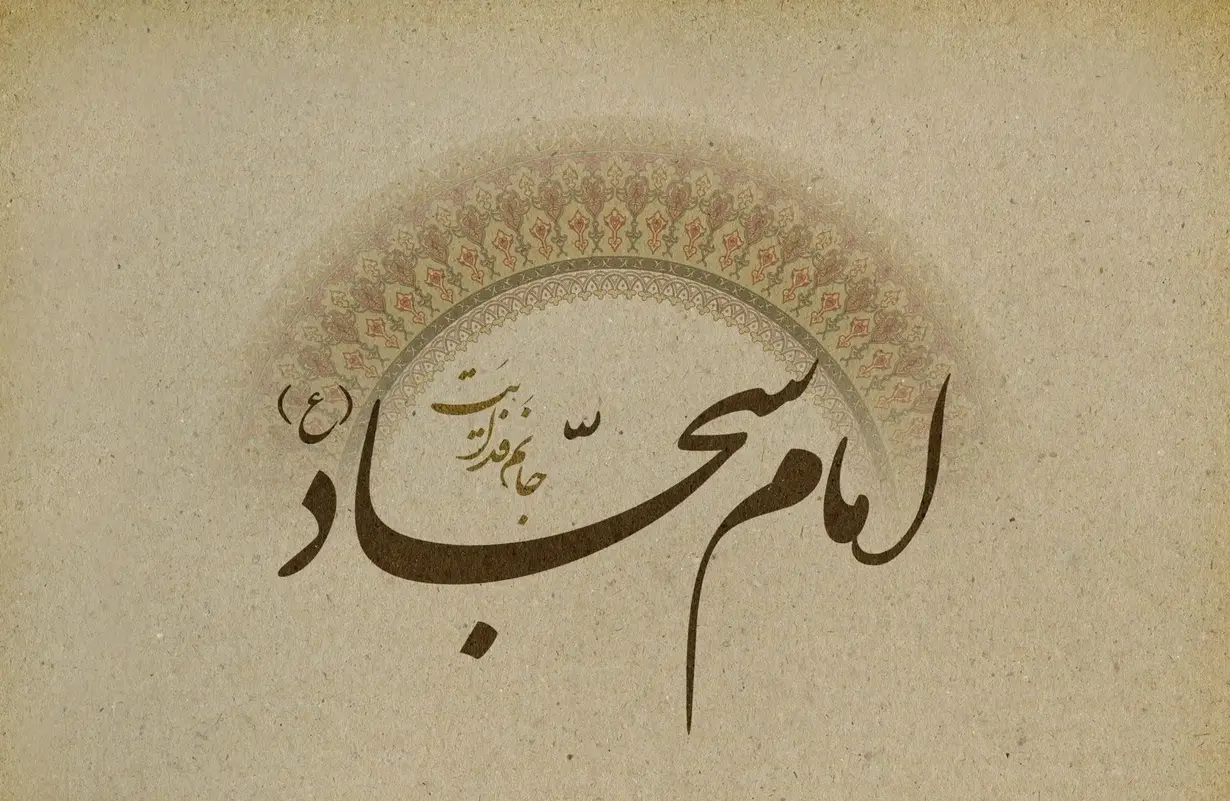 امام سجّاد (ع)
جانم فدایت